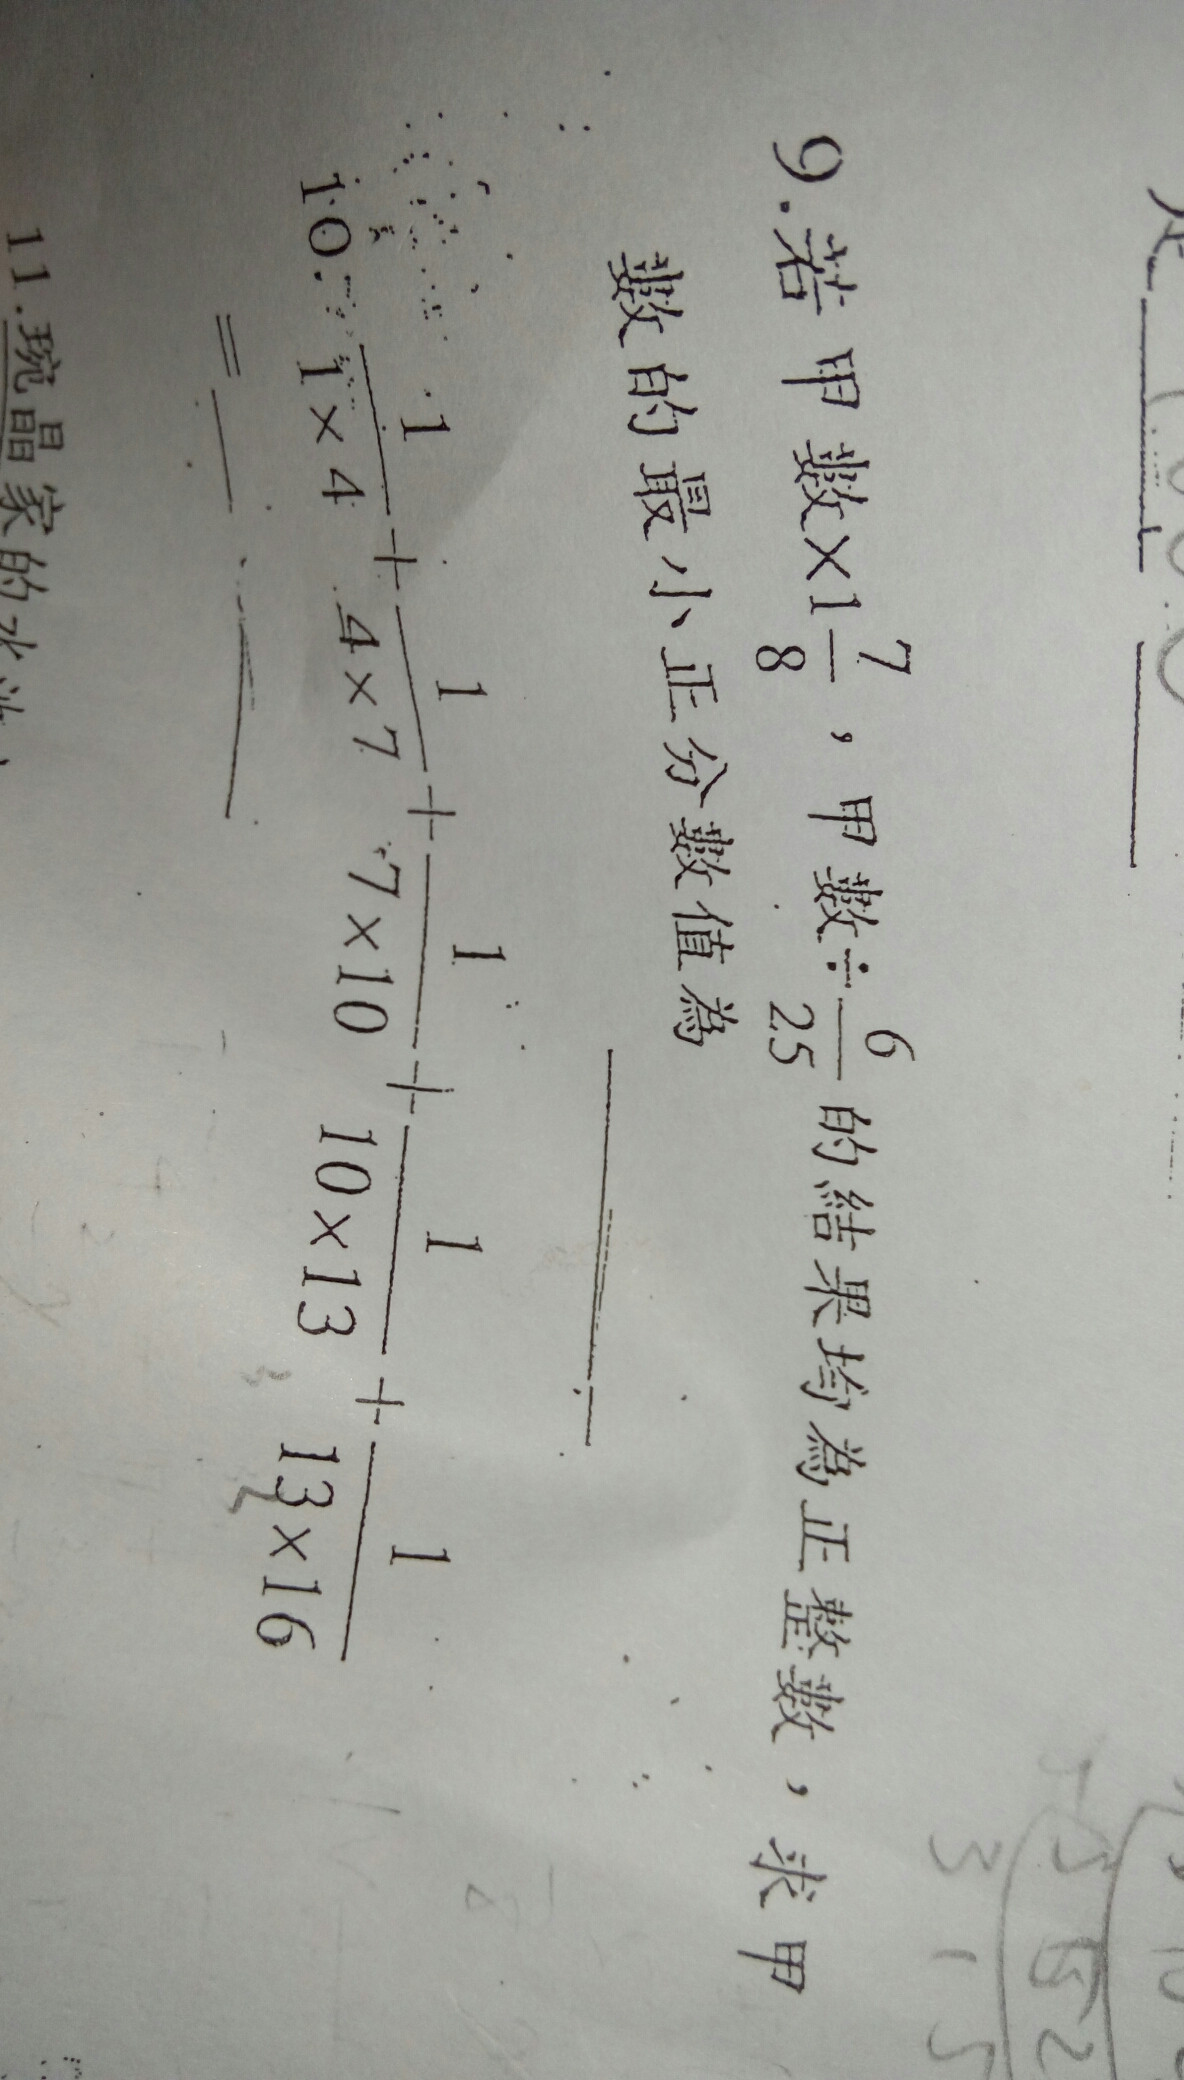 9.若甲數×1 7/8，甲數÷6/25的結果均為正整數，求甲
數的最小正分數值為
10. 1/1×4 + 1/4×7 + 1/7×10 + 1/10×13 + 1/13×16
=
11.琬晶家的水